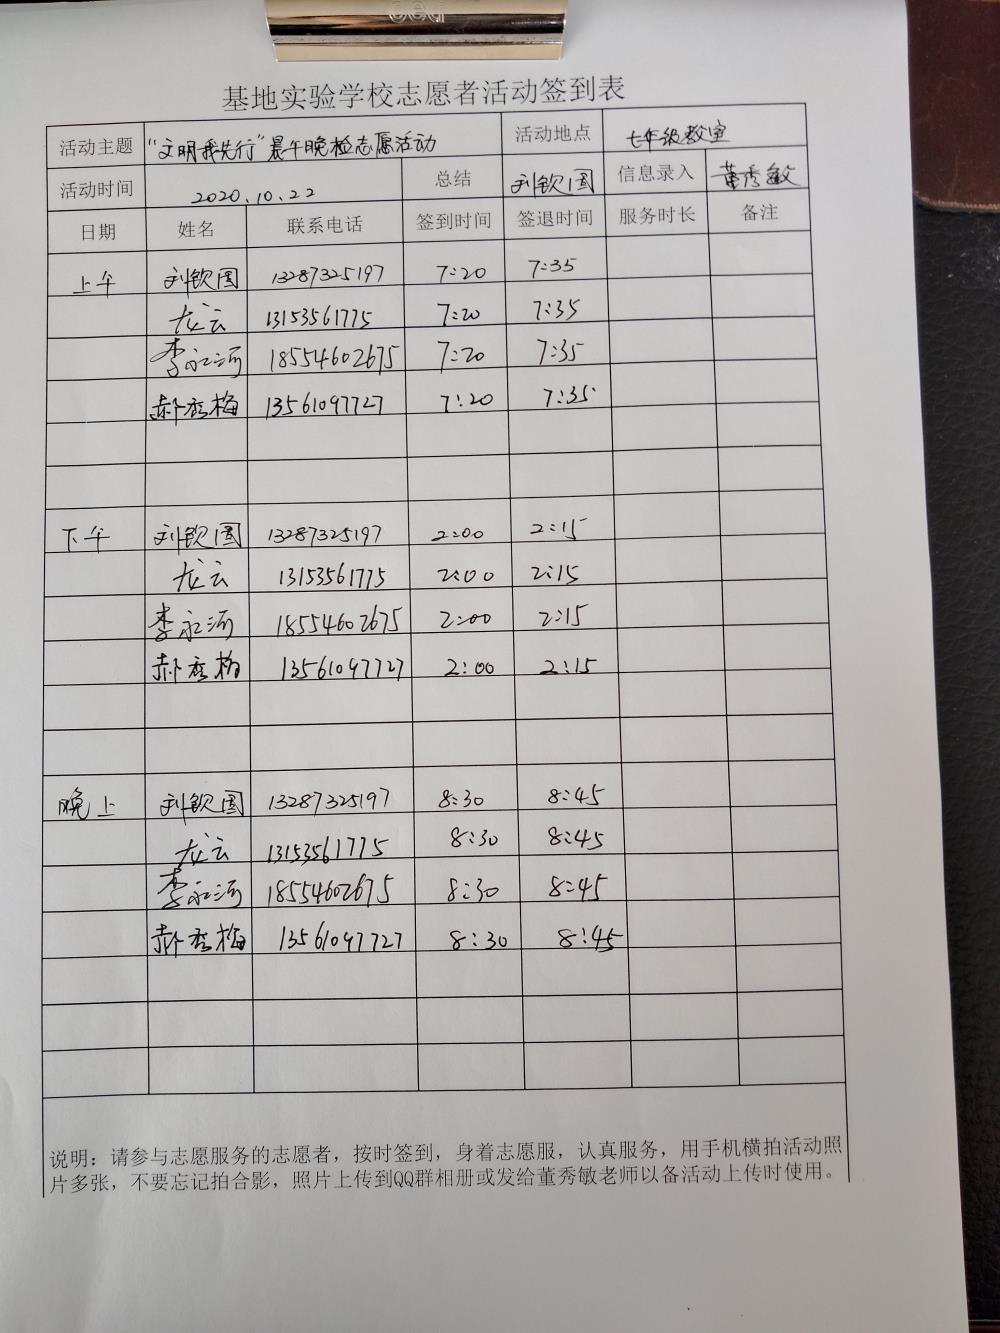 基地实验学校志愿者活动签到表
活动主题 "文明我先行"晨午晚检志愿活动 活动地点 七年级教室
活动时间 2020.10.22 总结 刘钦国 信息录入 董秀敏
日期 姓名 联系电话 签到时间 签退时间 服务时长 备注
上午 刘钦国 13287325197 7:20 7:35
龙云 13153561775 7:20 7:35
李永河 18554602675 7:20 7:35
郝秀梅 13561097727 7:20 7:35
下午 刘钦国 13287325197 2:00 2:15
龙云 13153561775 2:00 2:15
李永河 18554602675 2:00 2:15
郝秀梅 13561097727 2:00 2:15
晚上 刘钦国 13287325197 8:30 8:45
龙云 13153561775 8:30 8:45
李永河 18554602675 8:30 8:45
郝秀梅 13561097727 8:30 8:45
说明：请参与志愿服务的志愿者，按时签到，身着志愿服，认真服务，用手机横拍活动照
片多张，不要忘记拍合影，照片上传到QQ群相册或发给董秀敏老师以备活动上传时使用。